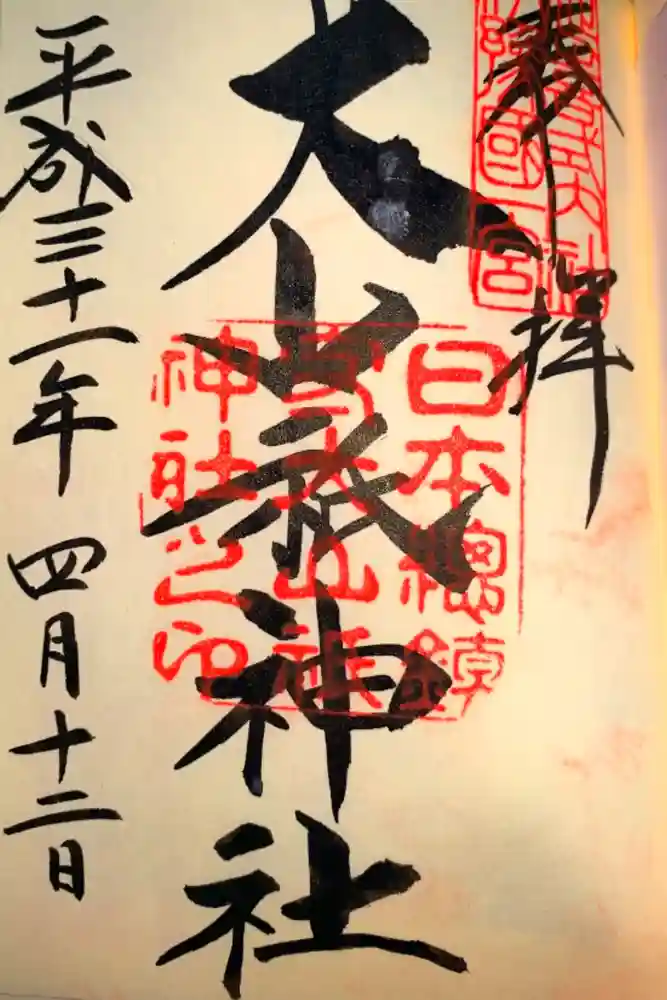 奉拝
豫國一宮
大山祇神社
日本總鎮
守大山祇
神社之印
平成三十一年四月十二日